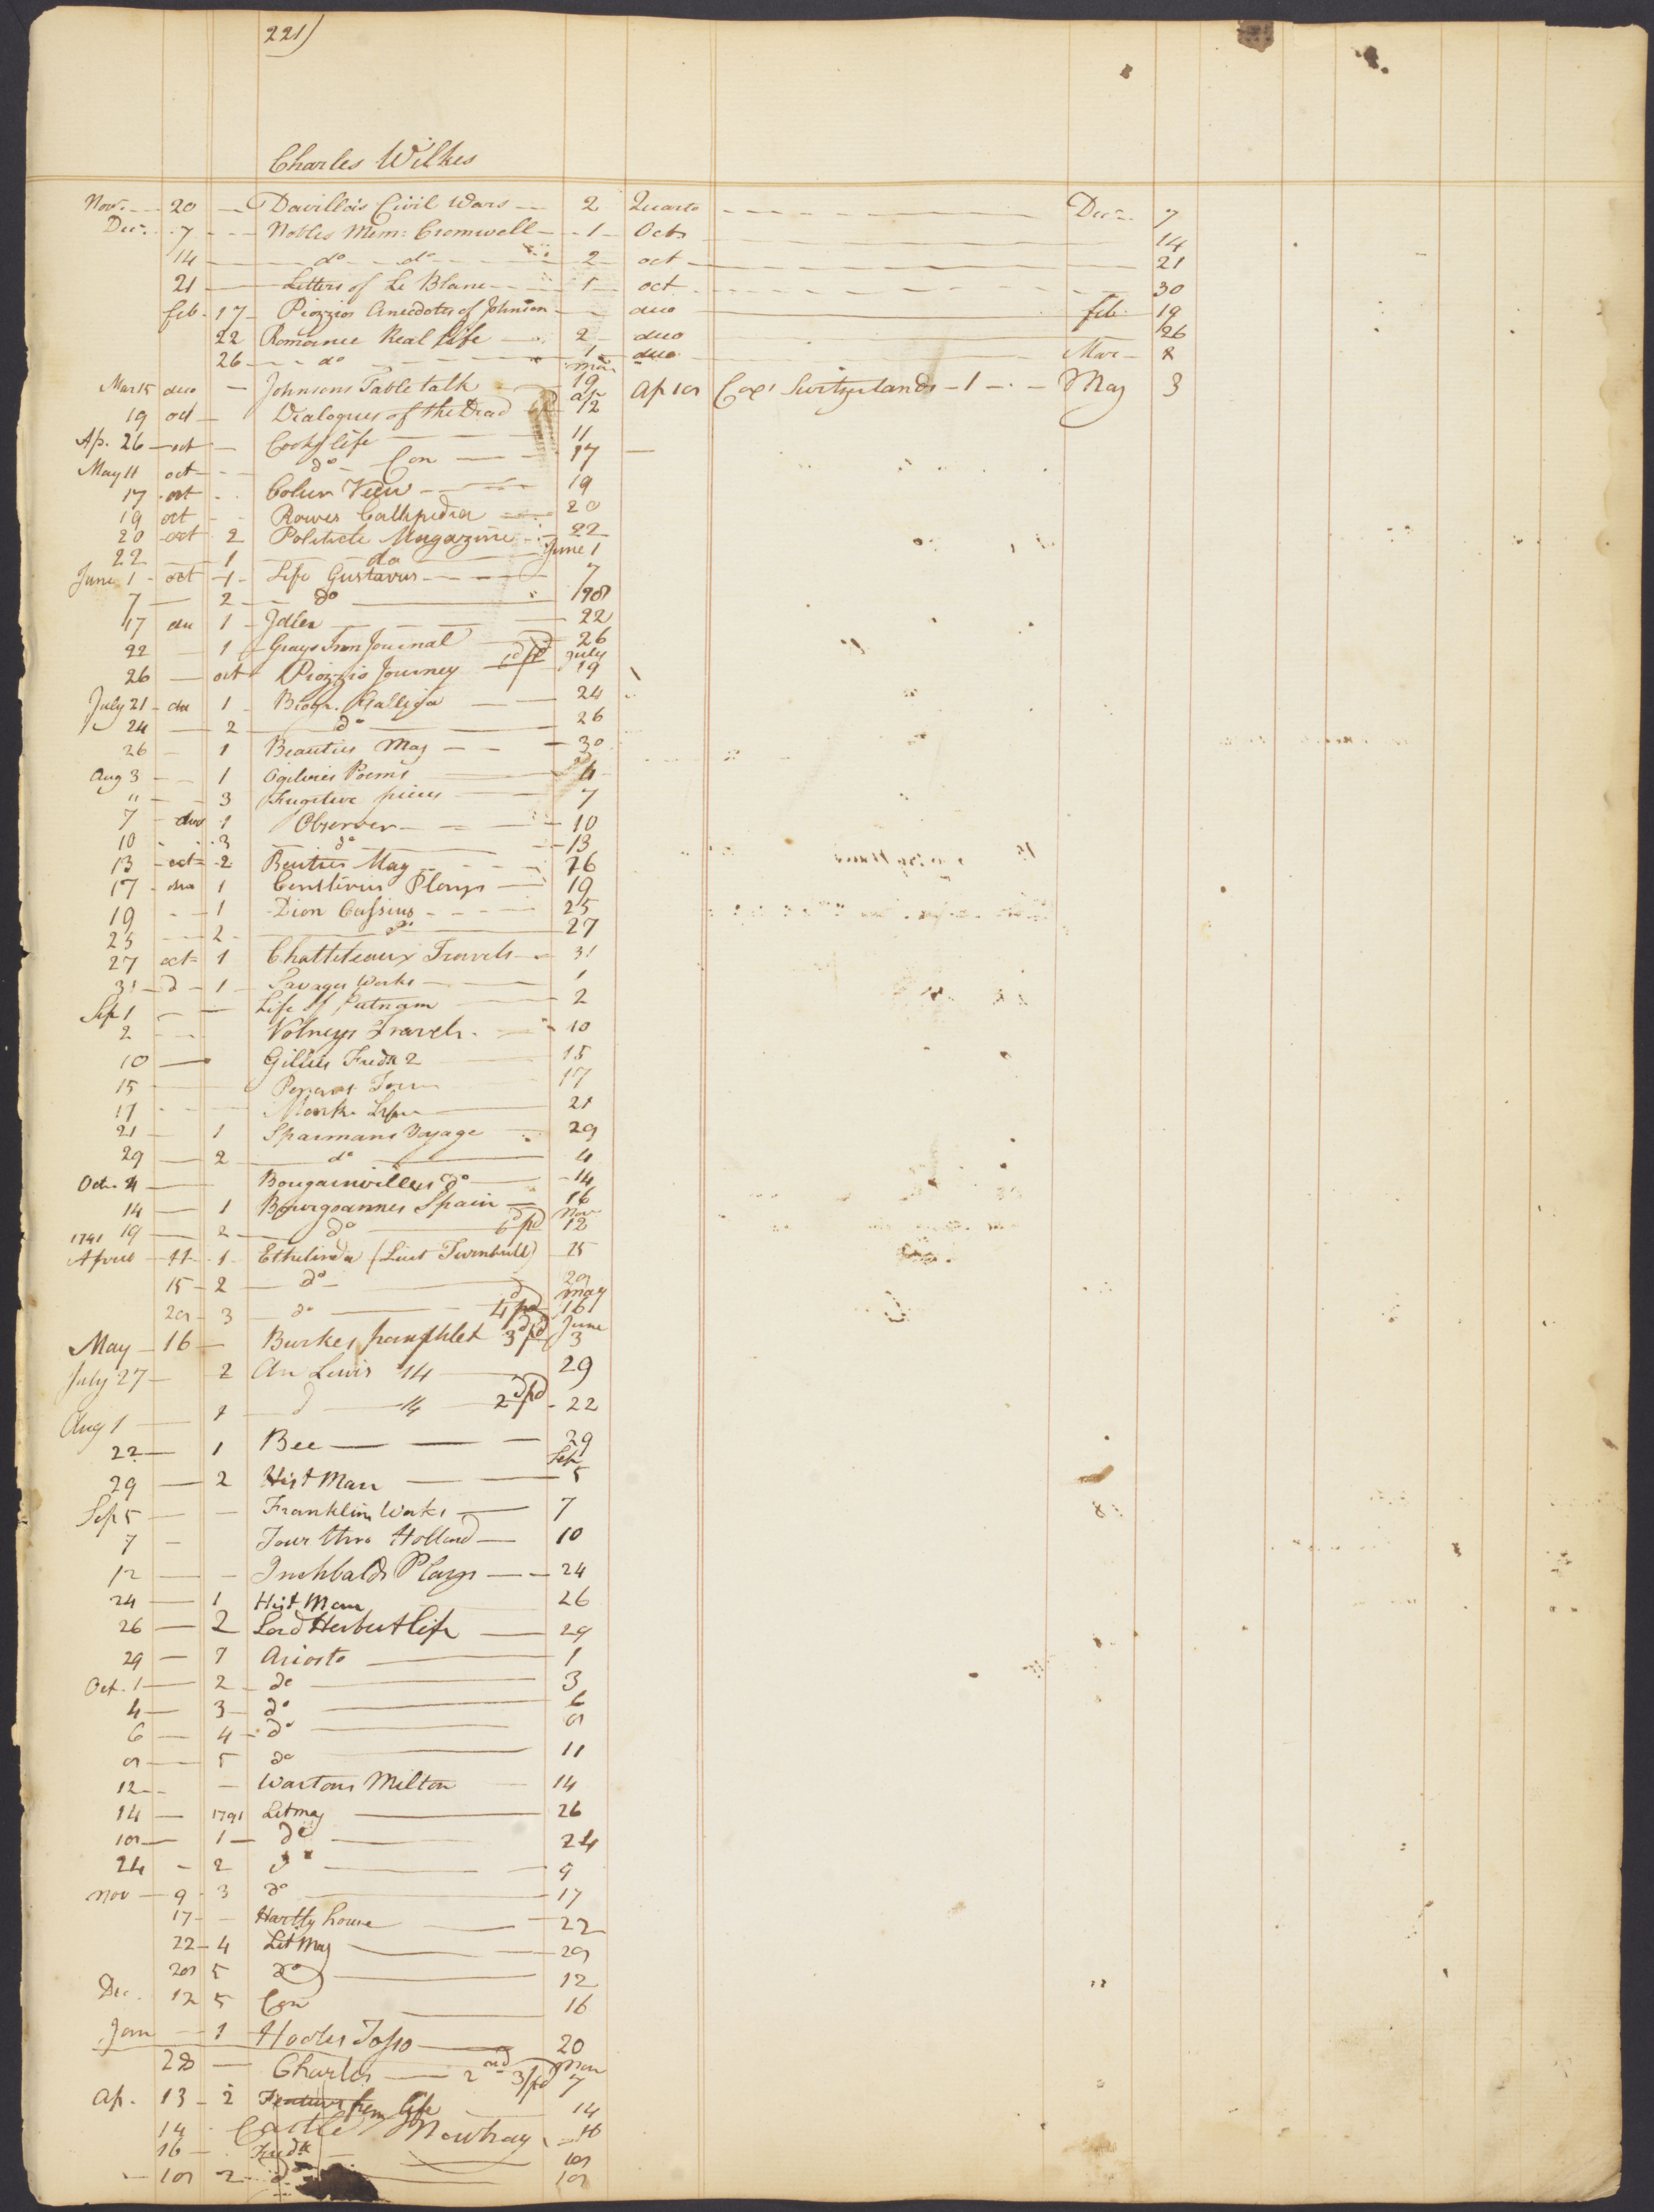 221)
Charles Wilkes
Nov. 20 Davilla's Civil Wars 2 Quarto Decr. 7
Dec. 7 Nobles Mem: Cromwell 1 Octo 14
14 do do 2 oct 21
21 Letters of Le Blanc 1 oct 30
feb. 17 Piozzios Anecdotes of Johnson duo feb 19
22 Romance Real Life 2 duo 26
26 do 1 duo Mar 8
Mar 15 duo Johnsons Table talk mar 19 Ap 19 Cox' Switzerlands 1 May 3
19 oct Dialogues of the Dead ap 12
Ap. 26 oct Cooks life 11
May 11 oct do Con 17
17 oct View 19
19 oct Rowes Callipedia 20
20 oct 2 Politicle Magazine 22
22 1 do June 1
June 1 oct 1 Life Gustavus 7
7 2 do
17 du 1 Idler 22
22 1 Grays Journal 26
26 oct Piozzio Journey 6d pd July 19
July 21 du 1 Biogr. Gallija 24
24 2 do 26
26 1 Beauties Mag 30
Aug 3 1 Ogilvies Poems 4
" 3 Fugitive pieces 7
7 duo 1 Observer 10
10 3 do 13
13 oct 2 Beuties Mag 16
17 duo 1 Centlivius Plays 19
19 1 Dion Cassius 25
25 2 do 27
27 oct 1 Chatteleaux Travels 31
31 d 1 Savages Works 1
Sep 1 Life of Putnam 2
2 Volneys Travels 10
10 Gillies Fredk 2 15
15 Tour 17
17 Monk Life 21
21 1 Sparmans Voyage 29
29 2 do 4
Oct. 4 Bougainvilles do 14
14 1 Bourgoannes Spain 16
1791 19 2 do 6d pd Nov 12
Aprill 11 1 Ethelinda (Lieut Turnbull) 15
15 2 do 29
29 3 do 4d pd may 16
May 16 Burkes pamphlet 3d pd June 3
July 27 2 An Lewis 14 29
Aug 1 1 d 14 2d pd 22
22 1 Bee 29
29 2 Hist Man Sep 5
Sep 5 Franklins Works 7
7 Tour thro Holland 10
12 Inchbalds Plays 24
24 1 Hist Man 26
26 2 Lord Herbert life 29
29 1 Ariosto 1
Oct. 1 2 do 3
4 3 do 6
6 4 do 9
9 5 do 11
12 Wartons Milton 14
14 1791 Lit mag 26
19 1 do 24
24 2 do 9
Nov 9 3 do 17
17 Hartly house 22
22 4 Lit Mag 29
29 5 do 12
Dec. 12 5 Con 16
Jan 1 Hooles Tasso 20
28 Charles 2 nd 3/pd Mar 7
Ap. 13 2 from life 14
14 Castle Mowbray 16
16 Fredk 19
19 2 do 19